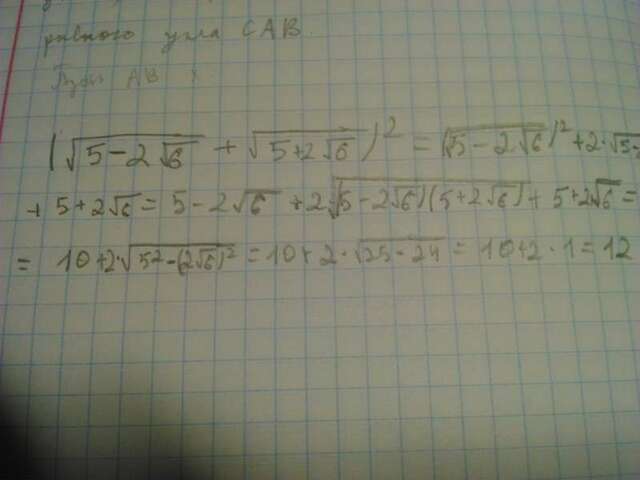 равного угла САВ.
АВ
(√(5-2√6) + √(5+2√6))² = (√(5-2√6))² + 2·√5-
+ 5+2√6 = 5-2√6 + 2·√((5-2√6)(5+2√6)) + 5+2√6 =
= 10+2·√(5²-(2√6)²) = 10+2·√(25-24) = 10+2·1=12